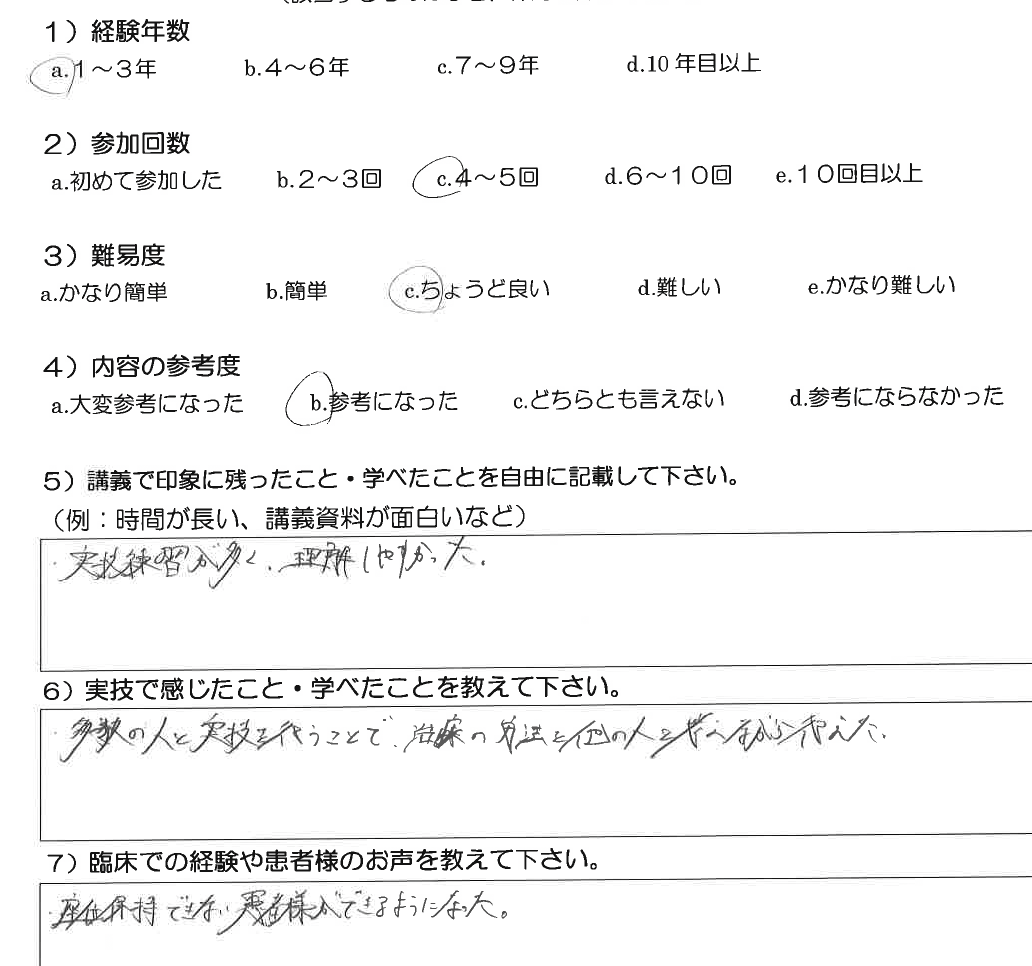 1）経験年数
a.1～3年 b.4～6年 c.7～9年 d.10年目以上
2）参加回数
a.初めて参加した b.2～3回 c.4～5回 d.6～10回 e.10回目以上
3）難易度
a.かなり簡単 b.簡単 c.ちょうど良い d.難しい e.かなり難しい
4）内容の参考度
a.大変参考になった b.参考になった c.どちらとも言えない d.参考にならなかった
5）講義で印象に残ったこと・学べたことを自由に記載して下さい。
（例：時間が長い、講義資料が面白いなど）
・実技練習が多く、理解しやすかった。
6）実技で感じたこと・学べたことを教えて下さい。
・多数の人と実技を行うことで、治療の方法を他の人と
7）臨床での経験や患者様のお声を教えて下さい。
・座位保持できない患者様ができるようになった。